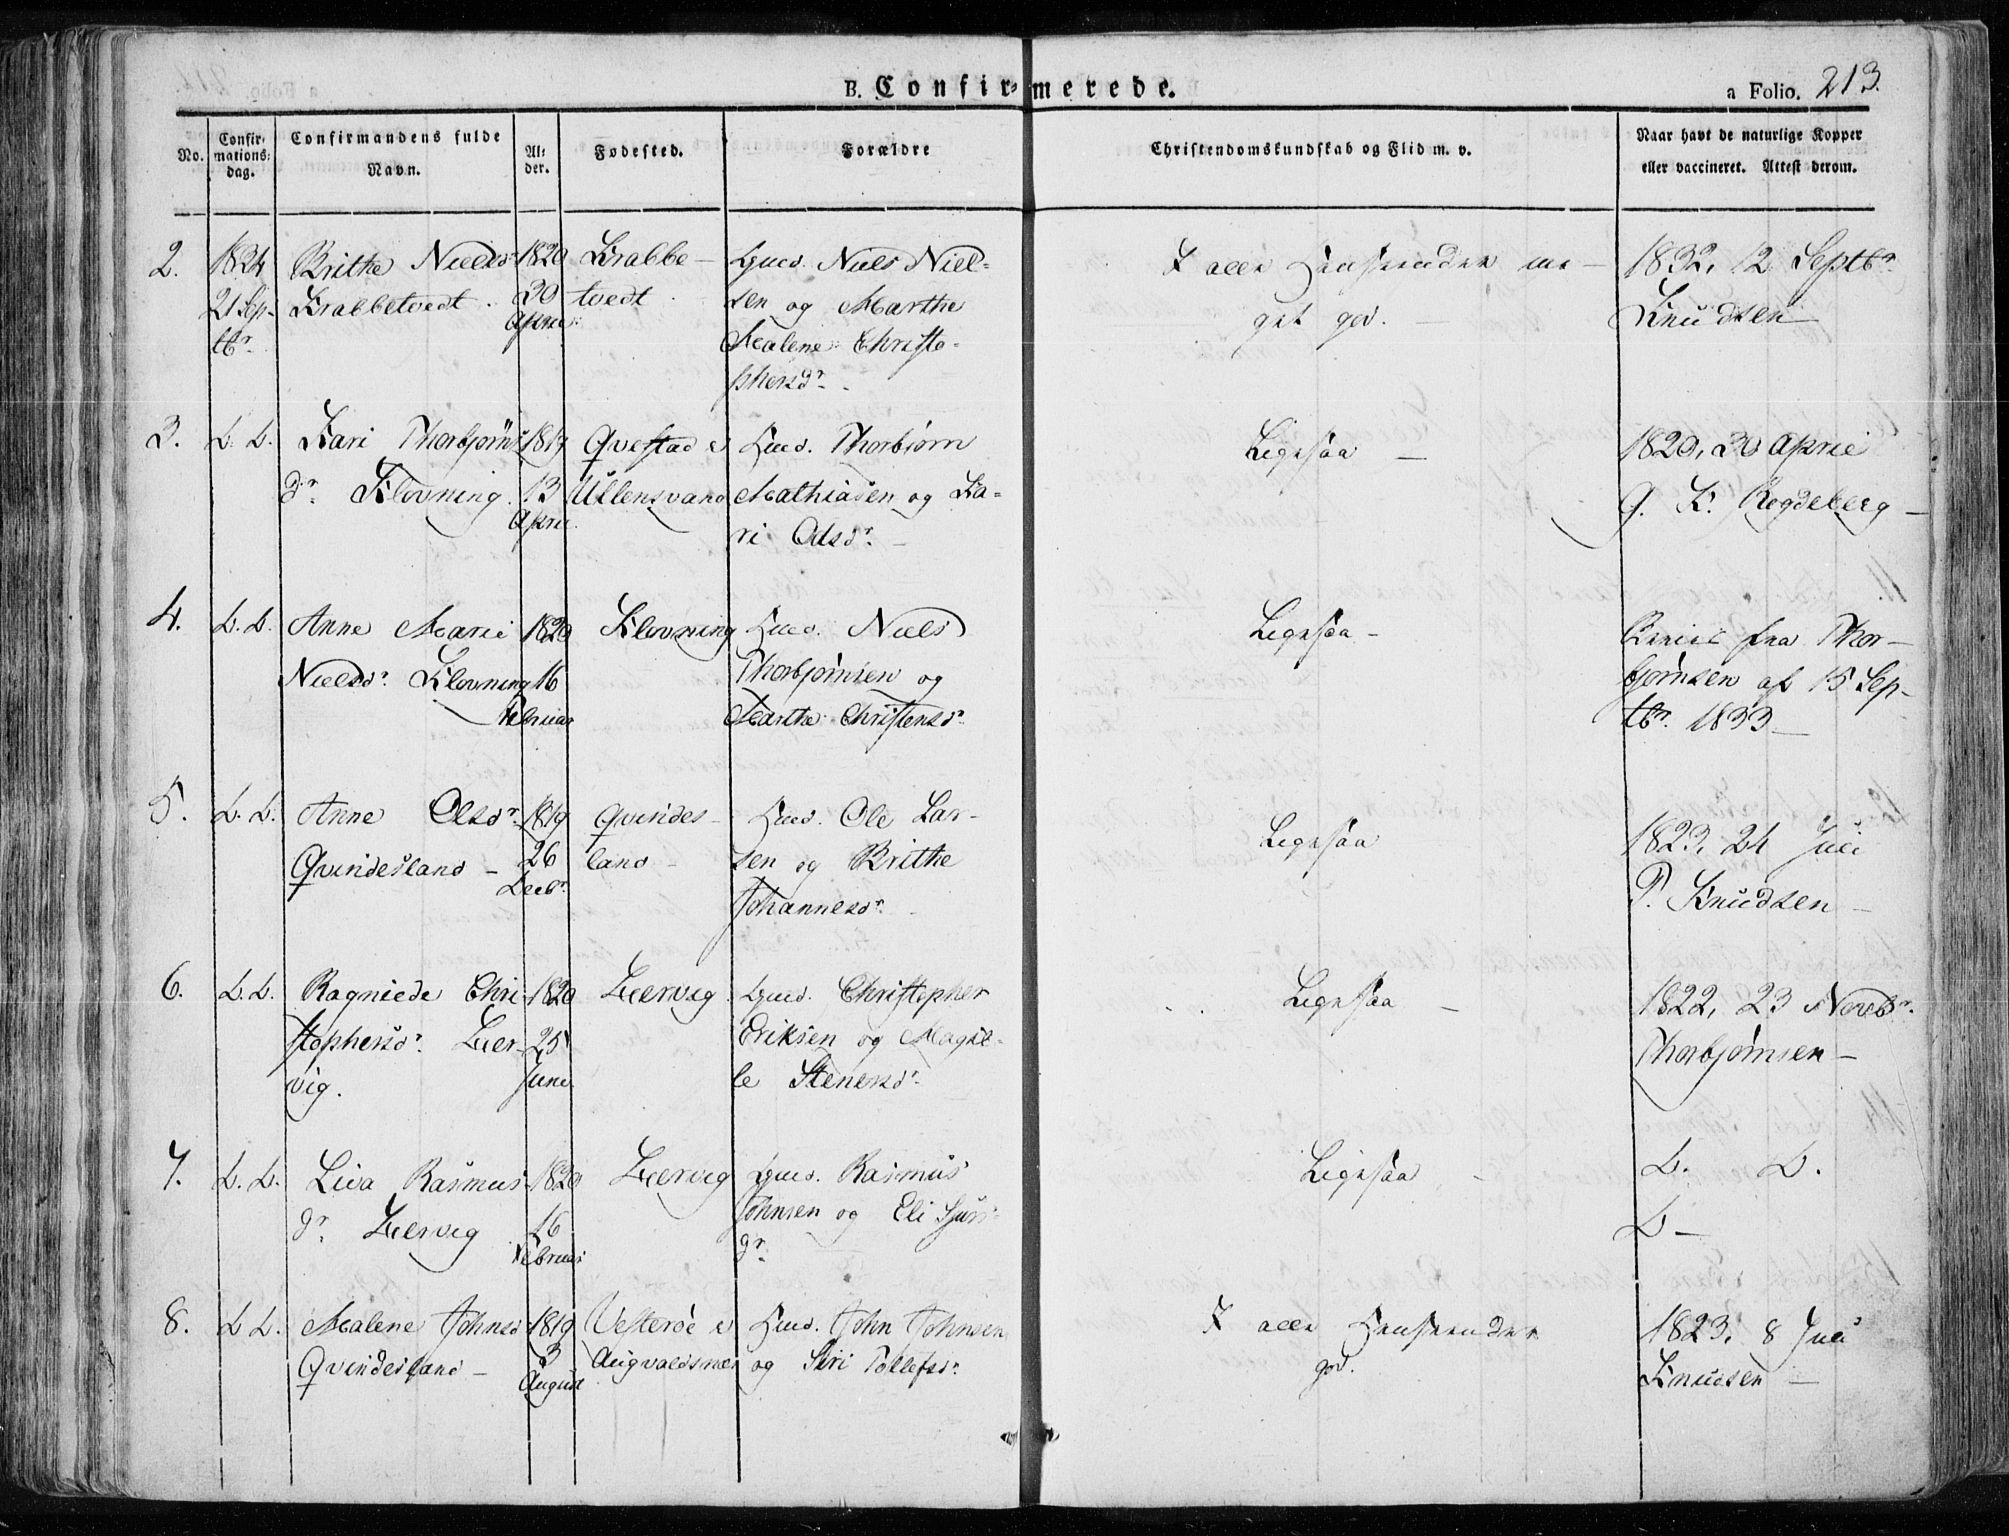 B. Confirmerede.
a Folio. 213.
No.
Confirmations-dag.
Confirmandens fulde Navn.
Alder.
Fødested.
Forældre
Christendomskundskab og Flid m. v.
Naar havt de naturlige Kopper eller vaccineret. Attest derom.
2.
21 Sep-
tbr.
Brithe Nielsdr
Krabbetvedt.
1820
Krabbe-
tvedt
Niels Niel-
sen og Marthe
Malene Christo-
phersdr.
I alle Henseender me-
get god.
1832, 12 Septbr.
Knudsen
3.
D. D.
Kari Thorbjørns
dr. Klovning.
13
April
Qvestad i
Ullensvand
Thorbjørn
Mathiasen og Ka-
ri Odsdr.
Ligesaa
1820, 20 April
G. K. Rogdeberg
4.
D. D.
Anne Marie
Nielsdr. Klovning
1820
16
Februar
Klovning
Niels
Thorbjørnsen og
Marthe Christensdr.
Ligesaa
fra Thor-
bjørnsen af 15 Sep-
tbr. 1833
5.
D. D.
Anne Olsdr.
Qvindesland
1819
26
Decbr.
Qvindes-
land
Ole Lar-
sen og Brithe
Johannesdr.
Ligesaa
1823, 24 Juli
P. Knudsen
6.
D. D.
Ragnilde Chri-
stophersdr. Lier-
vig.
1820
25
Juni
Liervig
Christopher
Eriksen og Magil-
le Stenersdr.
Ligesaa
1822, 23 Novbr.
Thorbjørnsen
7.
D. D.
Liva Rasmus-
dr. Liervig
1820
16
Februar
Liervig
Rasmus
Johnsen og Eli Sjurs-
dr.
Ligesaa
D. D.
D
8.
D D.
Malene Johnsd
Qvindesland
1819
3
August
Vesterøe i
Augvaldsnæs
John Johnsen
og Siri Tollefsdr.
I alle Henseender
god.
1823, 8 Juli
Knudsen